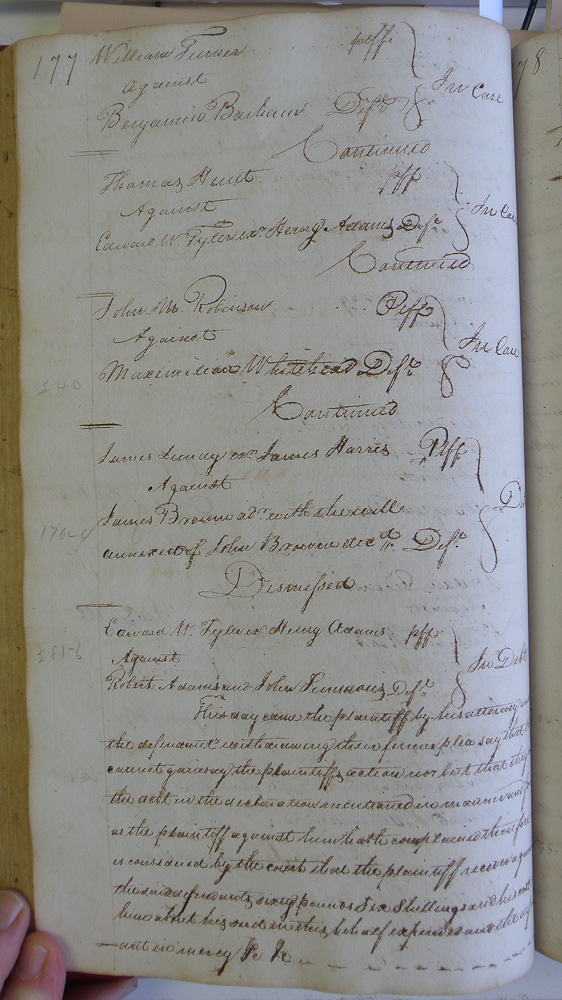 177 William Turner plff
Against In Case
Benjamin Barham Deft
Continued
Thomas Hunt plff
Against In Case
Edward W. Tyler exr Henry Adams Deft
Continued
John M. Robinson Plff
Against In Case
Maximilian Whitehead Deft
Continued
James exr James Harris Plff
Against
James Brown adr with the will
annexed of John Browne decd. Deft
Dismissed
Edward W. Tyler ex Henry Adams plff
Against In Debt
Robert Adams and John Simmons Deft
This day came the plaintiff by his attorney and
the defendant withdrawing their former plea say that
cannot gainsay the plaintiffs action nor but that they
the debt in the declaration mentioned in manner and
as the plaintiff against him hath complained therefore
is considered by the court that the plaintiff recover against
the said defendants sixty pounds Six Shillings and his costs
him about his suit in this behalf expended and the
ants in mercy &c &c
78
£40
£81-6